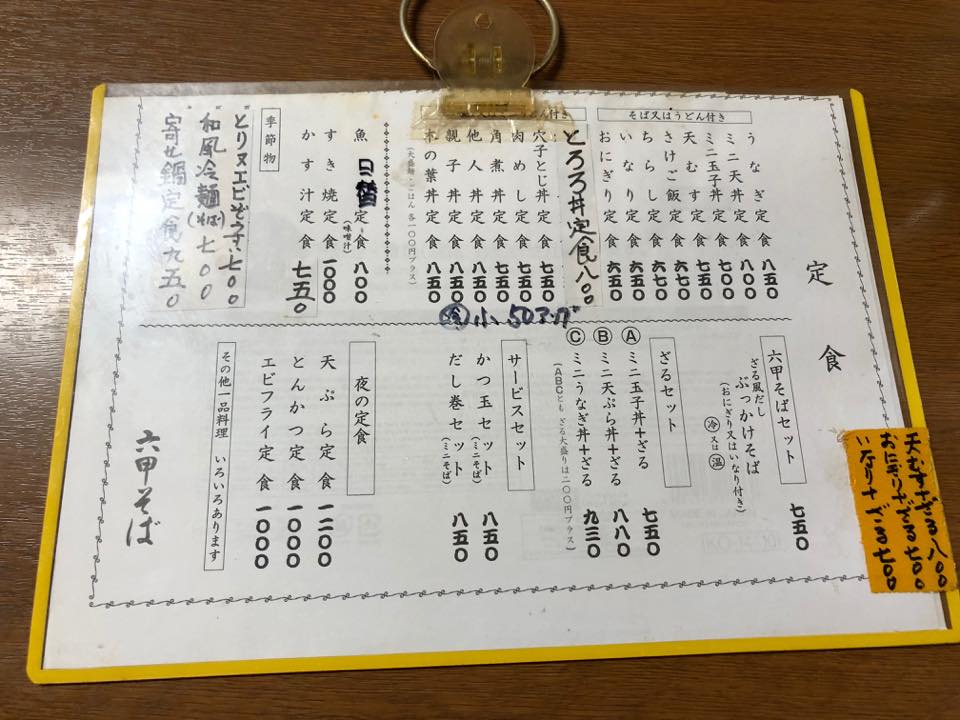 定食
そば又はうどん付き
うなぎ定食 八五〇
ミニ天丼定食 八〇〇
ミニ玉子丼定食
天むす定食 七五〇
さけご飯定食 六七〇
ちらし定食
いなり定食 六五〇
おにぎり定食 六五〇
とろろ丼定食 八〇〇
付き
穴子とじ丼定食 七五〇
肉めし定食 七五〇
角煮丼定食
他人丼定食
親子丼定食
木の葉丼定食
(大盛麺・ごはん 各一〇〇円プラス)
魚日替定食 八〇〇
(味噌汁)
すき焼定食 一〇〇〇
かす汁定食 七五〇
季節物
七〇〇
和風冷麺(そば) 七〇〇
寄せ鍋定食 九五〇
小 50マ
六甲そばセット
ざる風だし
ぶっかけそば 七五〇
(おにぎり又はいなり付き)
冷又は温
ざるセット
Ⓐミニ玉子丼+ざる 七五〇
Ⓑミニ天ぷら丼+ざる 八八〇
Ⓒミニうなぎ丼+ざる 九三〇
(ABCとも ざる大盛りは二〇〇円プラス)
サービスセット
かつ玉セット(ミニそば) 八五〇
だし巻セット(ミニそば) 八五〇
夜の定食
天ぷら定食 一二〇〇
とんかつ定食 一〇〇〇
エビフライ定食 一〇〇〇
その他一品料理 いろいろあります
六甲そば
天むす+ざる八〇〇
おにぎり+ざる七〇〇
いなり+ざる七〇〇